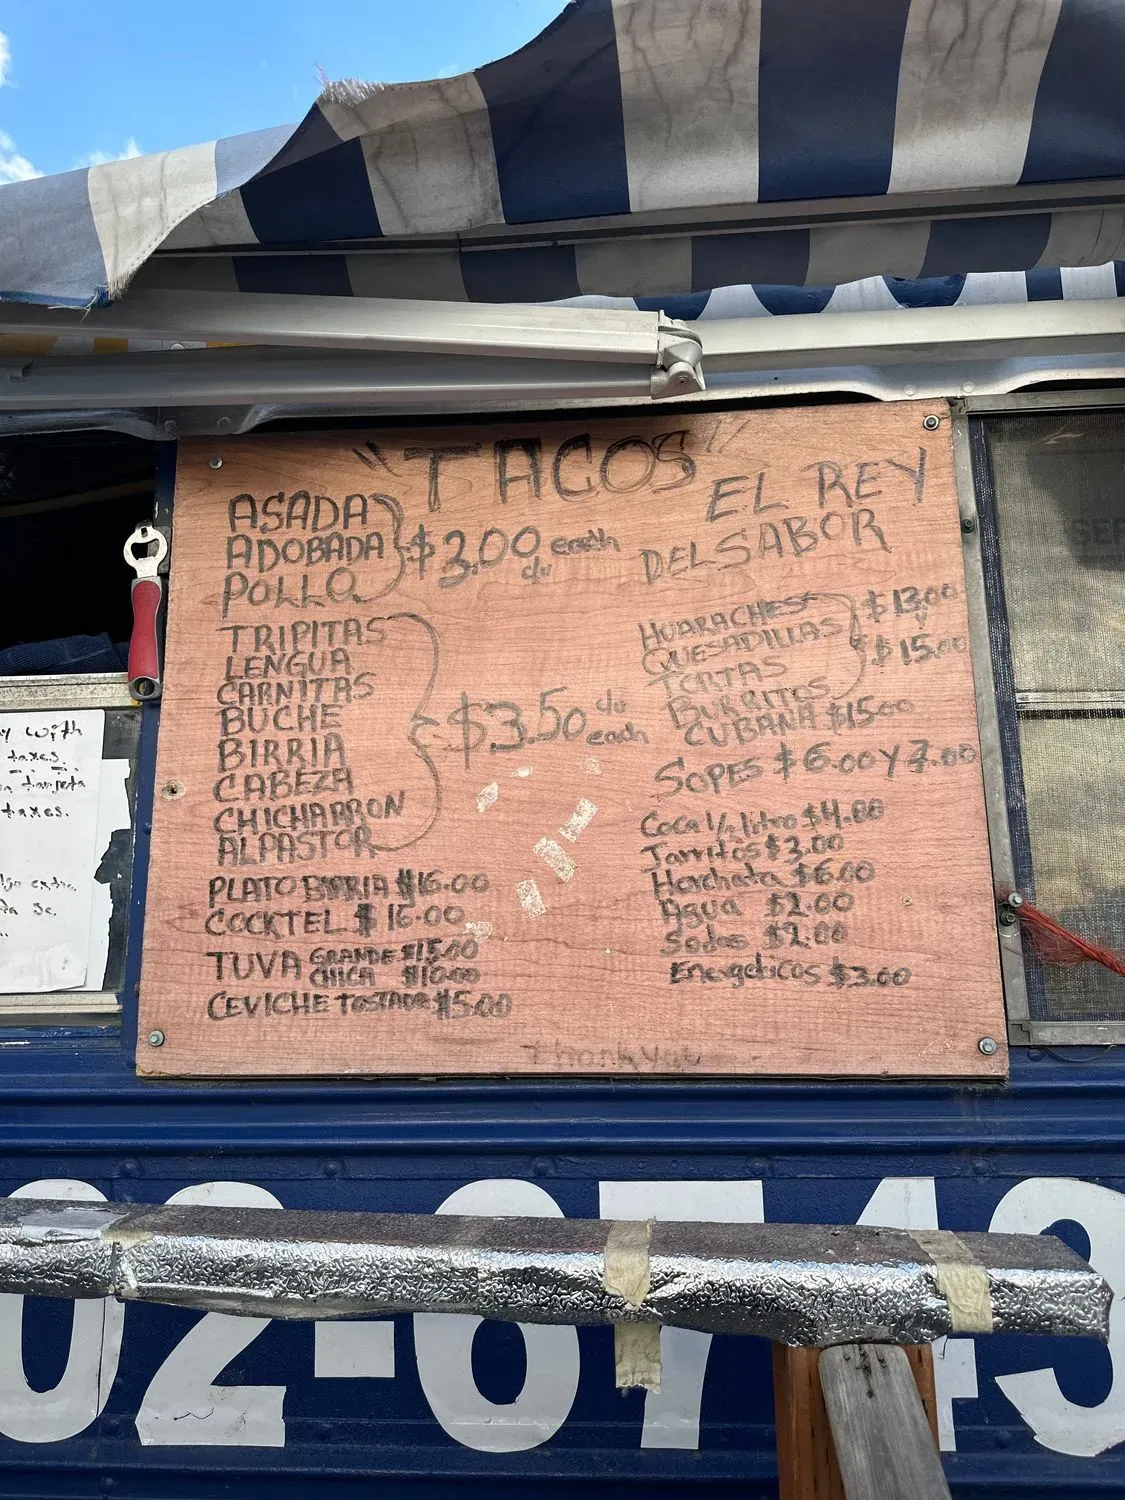 "TACOS"
EL REY
DEL SABOR
ASADA
ADOBADA
POLLO
$3.00 c/u each
TRIPITAS
LENGUA
CARNITAS
BUCHE
BIRRIA
CABEZA
CHICHARRON
ALPASTOR
$3.50 c/u each
PLATO BIRRIA $16.00
COCKTEL $16.00
TUVA GRANDE $15.00
CHICA $10.00
CEVICHE TOSTADA $5.00
HUARACHES
QUESADILLAS
TORTAS
BURRITOS
$13.00
y
$15.00
CUBANA $15.00
SOPES $6.00 Y 7.00
Coca 1/2 litro $4.00
Jarritos $3.00
Horchata $6.00
Agua $2.00
Sodas $2.00
Energeticos $3.00
Thank you
y with
taxes.
tarjeta
taxes.
extra
se.
02-6743